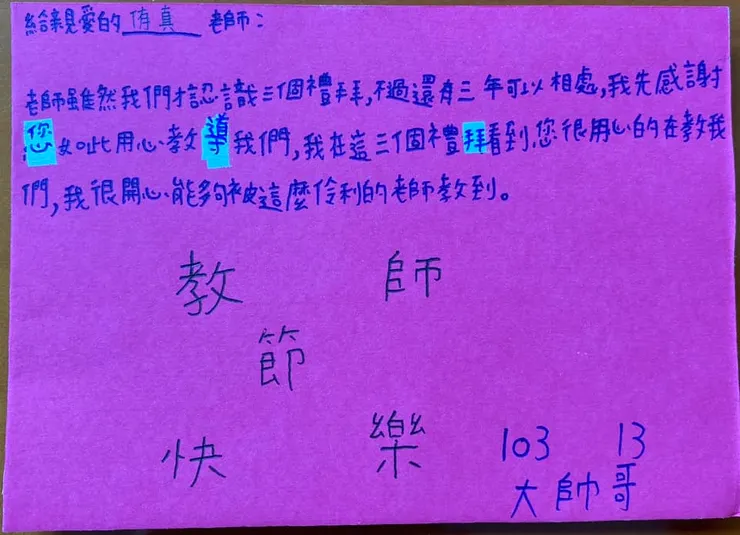 給親愛的 侑真 老師：
老師雖然我們才認識三個禮拜，不過還有三年可以相處，我先感謝
您如此用心教導我們，我在這三個禮拜看到您很用心的在教我
們，我很開心能夠被這麼伶利的老師教到。
教 師
節
快 樂
103 13
大帥哥